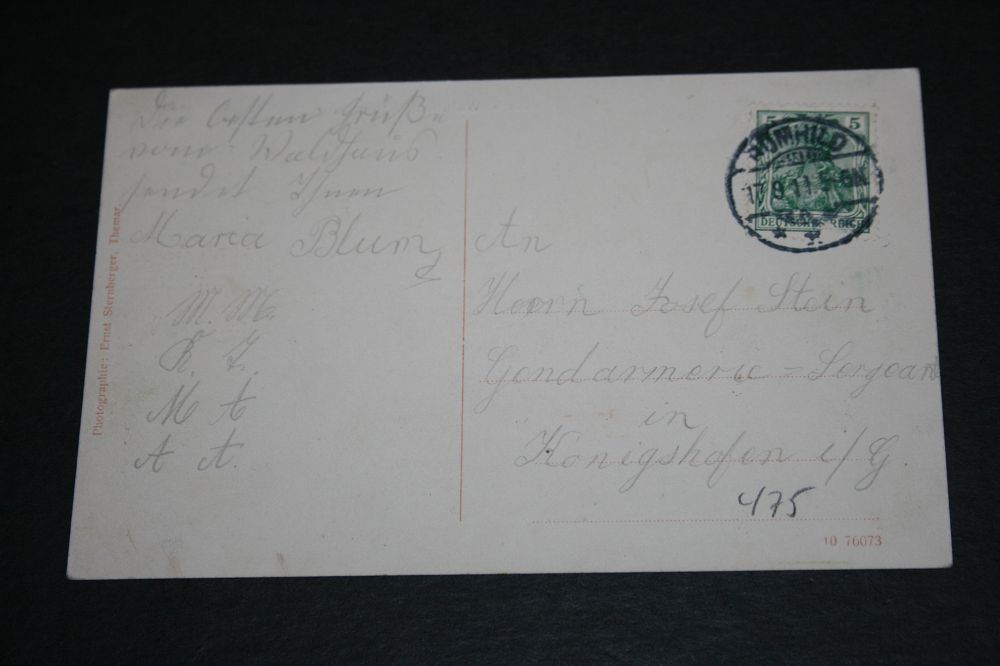 Die besten Grüße
vom Waldhaus
sendet Ihnen
Maria Blum
M. M.
K. T.
M A
A A.
Photographie: Ernst Sternberger, Themar.
5 5
RÖMHILD
17.9.11. 5-6N.
DEUTSCHES REICH
An
Herrn Josef Stein
Gendarmerie-Sergeant
in
Königshofen i/G.
475
10 76073